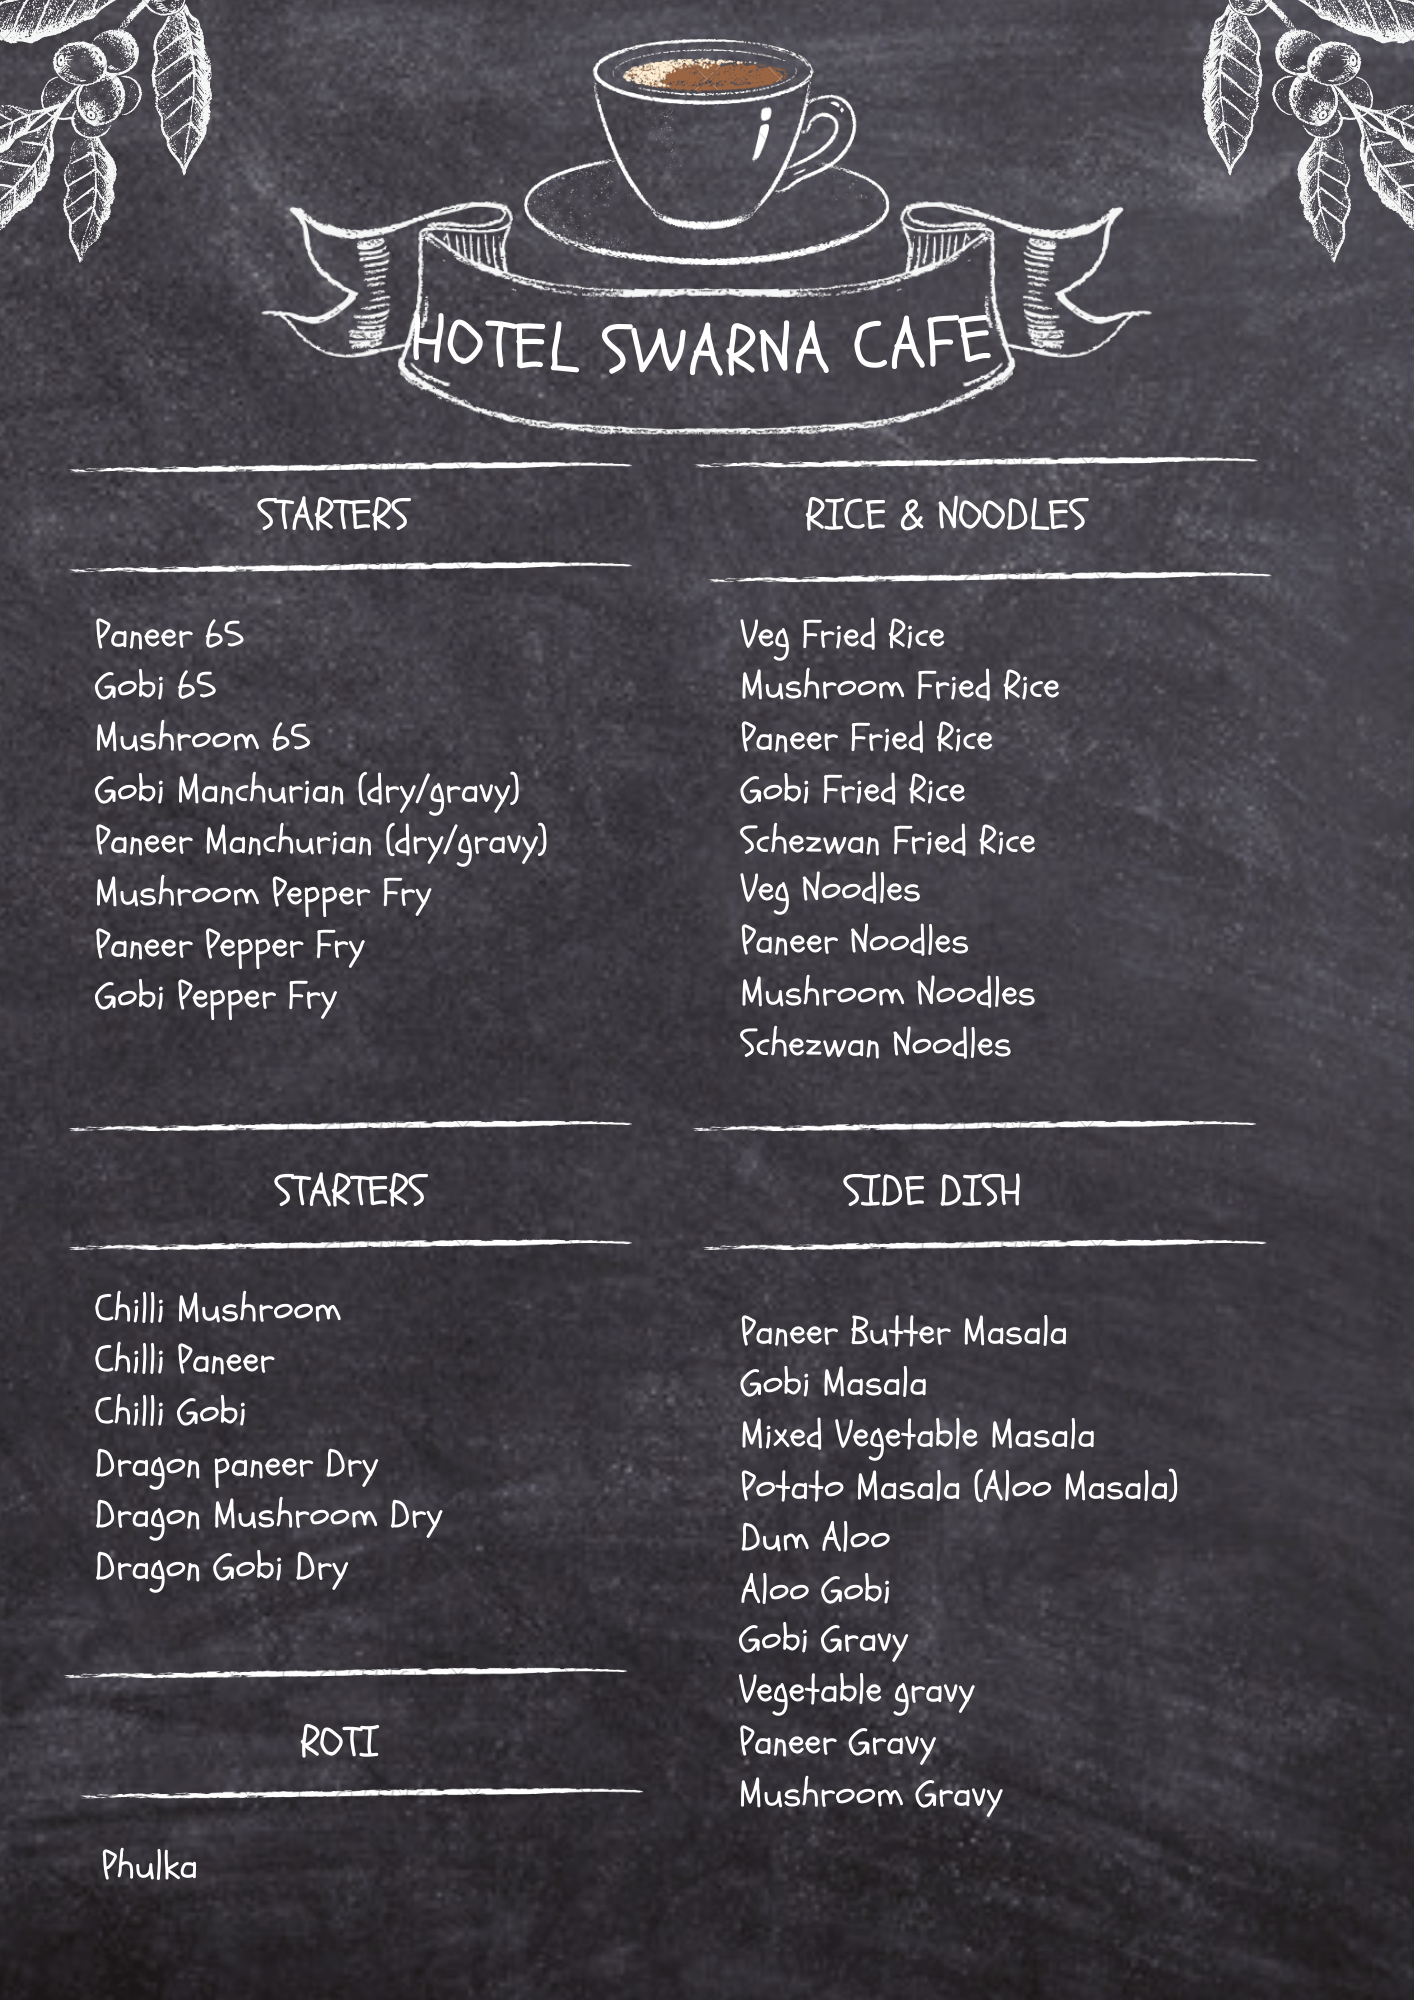 HOTEL SWARNA CAFE
STARTERS
Paneer 65
Gobi 65
Mushroom 65
Gobi Manchurian (dry/gravy)
Paneer Manchurian (dry/gravy)
Mushroom Pepper Fry
Paneer Pepper Fry
Gobi Pepper Fry
RICE & NOODLES
Veg Fried Rice
Mushroom Fried Rice
Paneer Fried Rice
Gobi Fried Rice
Schezwan Fried Rice
Veg Noodles
Paneer Noodles
Mushroom Noodles
Schezwan Noodles
STARTERS
Chilli Mushroom
Chilli Paneer
Chilli Gobi
Dragon paneer Dry
Dragon Mushroom Dry
Dragon Gobi Dry
SIDE DISH
Paneer Butter Masala
Gobi Masala
Mixed Vegetable Masala
Potato Masala (Aloo Masala)
Dum Aloo
Aloo Gobi
Gobi Gravy
Vegetable gravy
Paneer Gravy
Mushroom Gravy
ROTI
Phulka